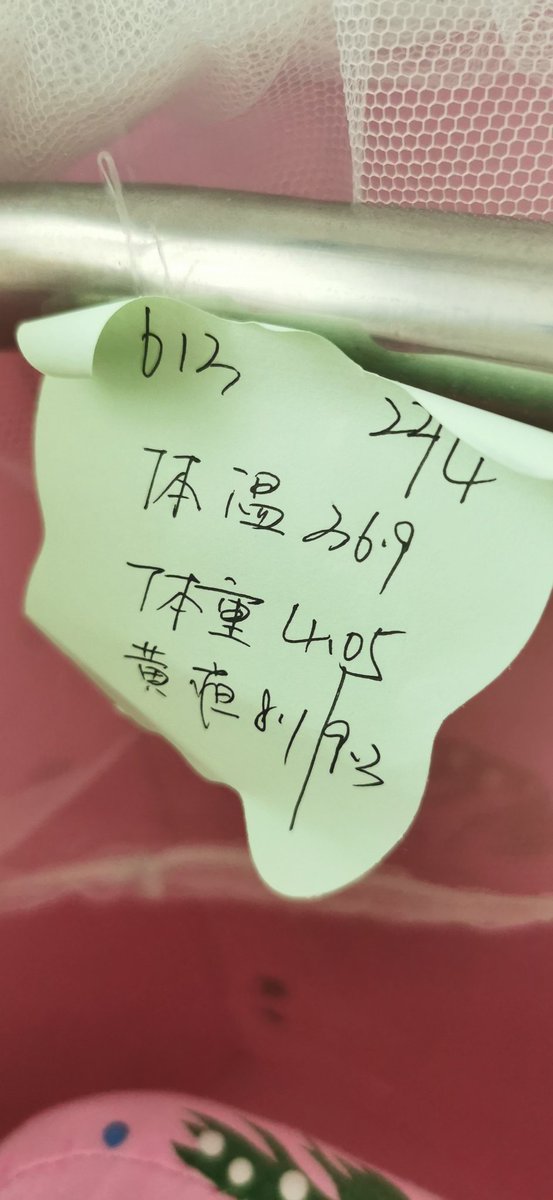 613
22/4
体温 36.9
体重 4.05
黄疸 8.1/9.3